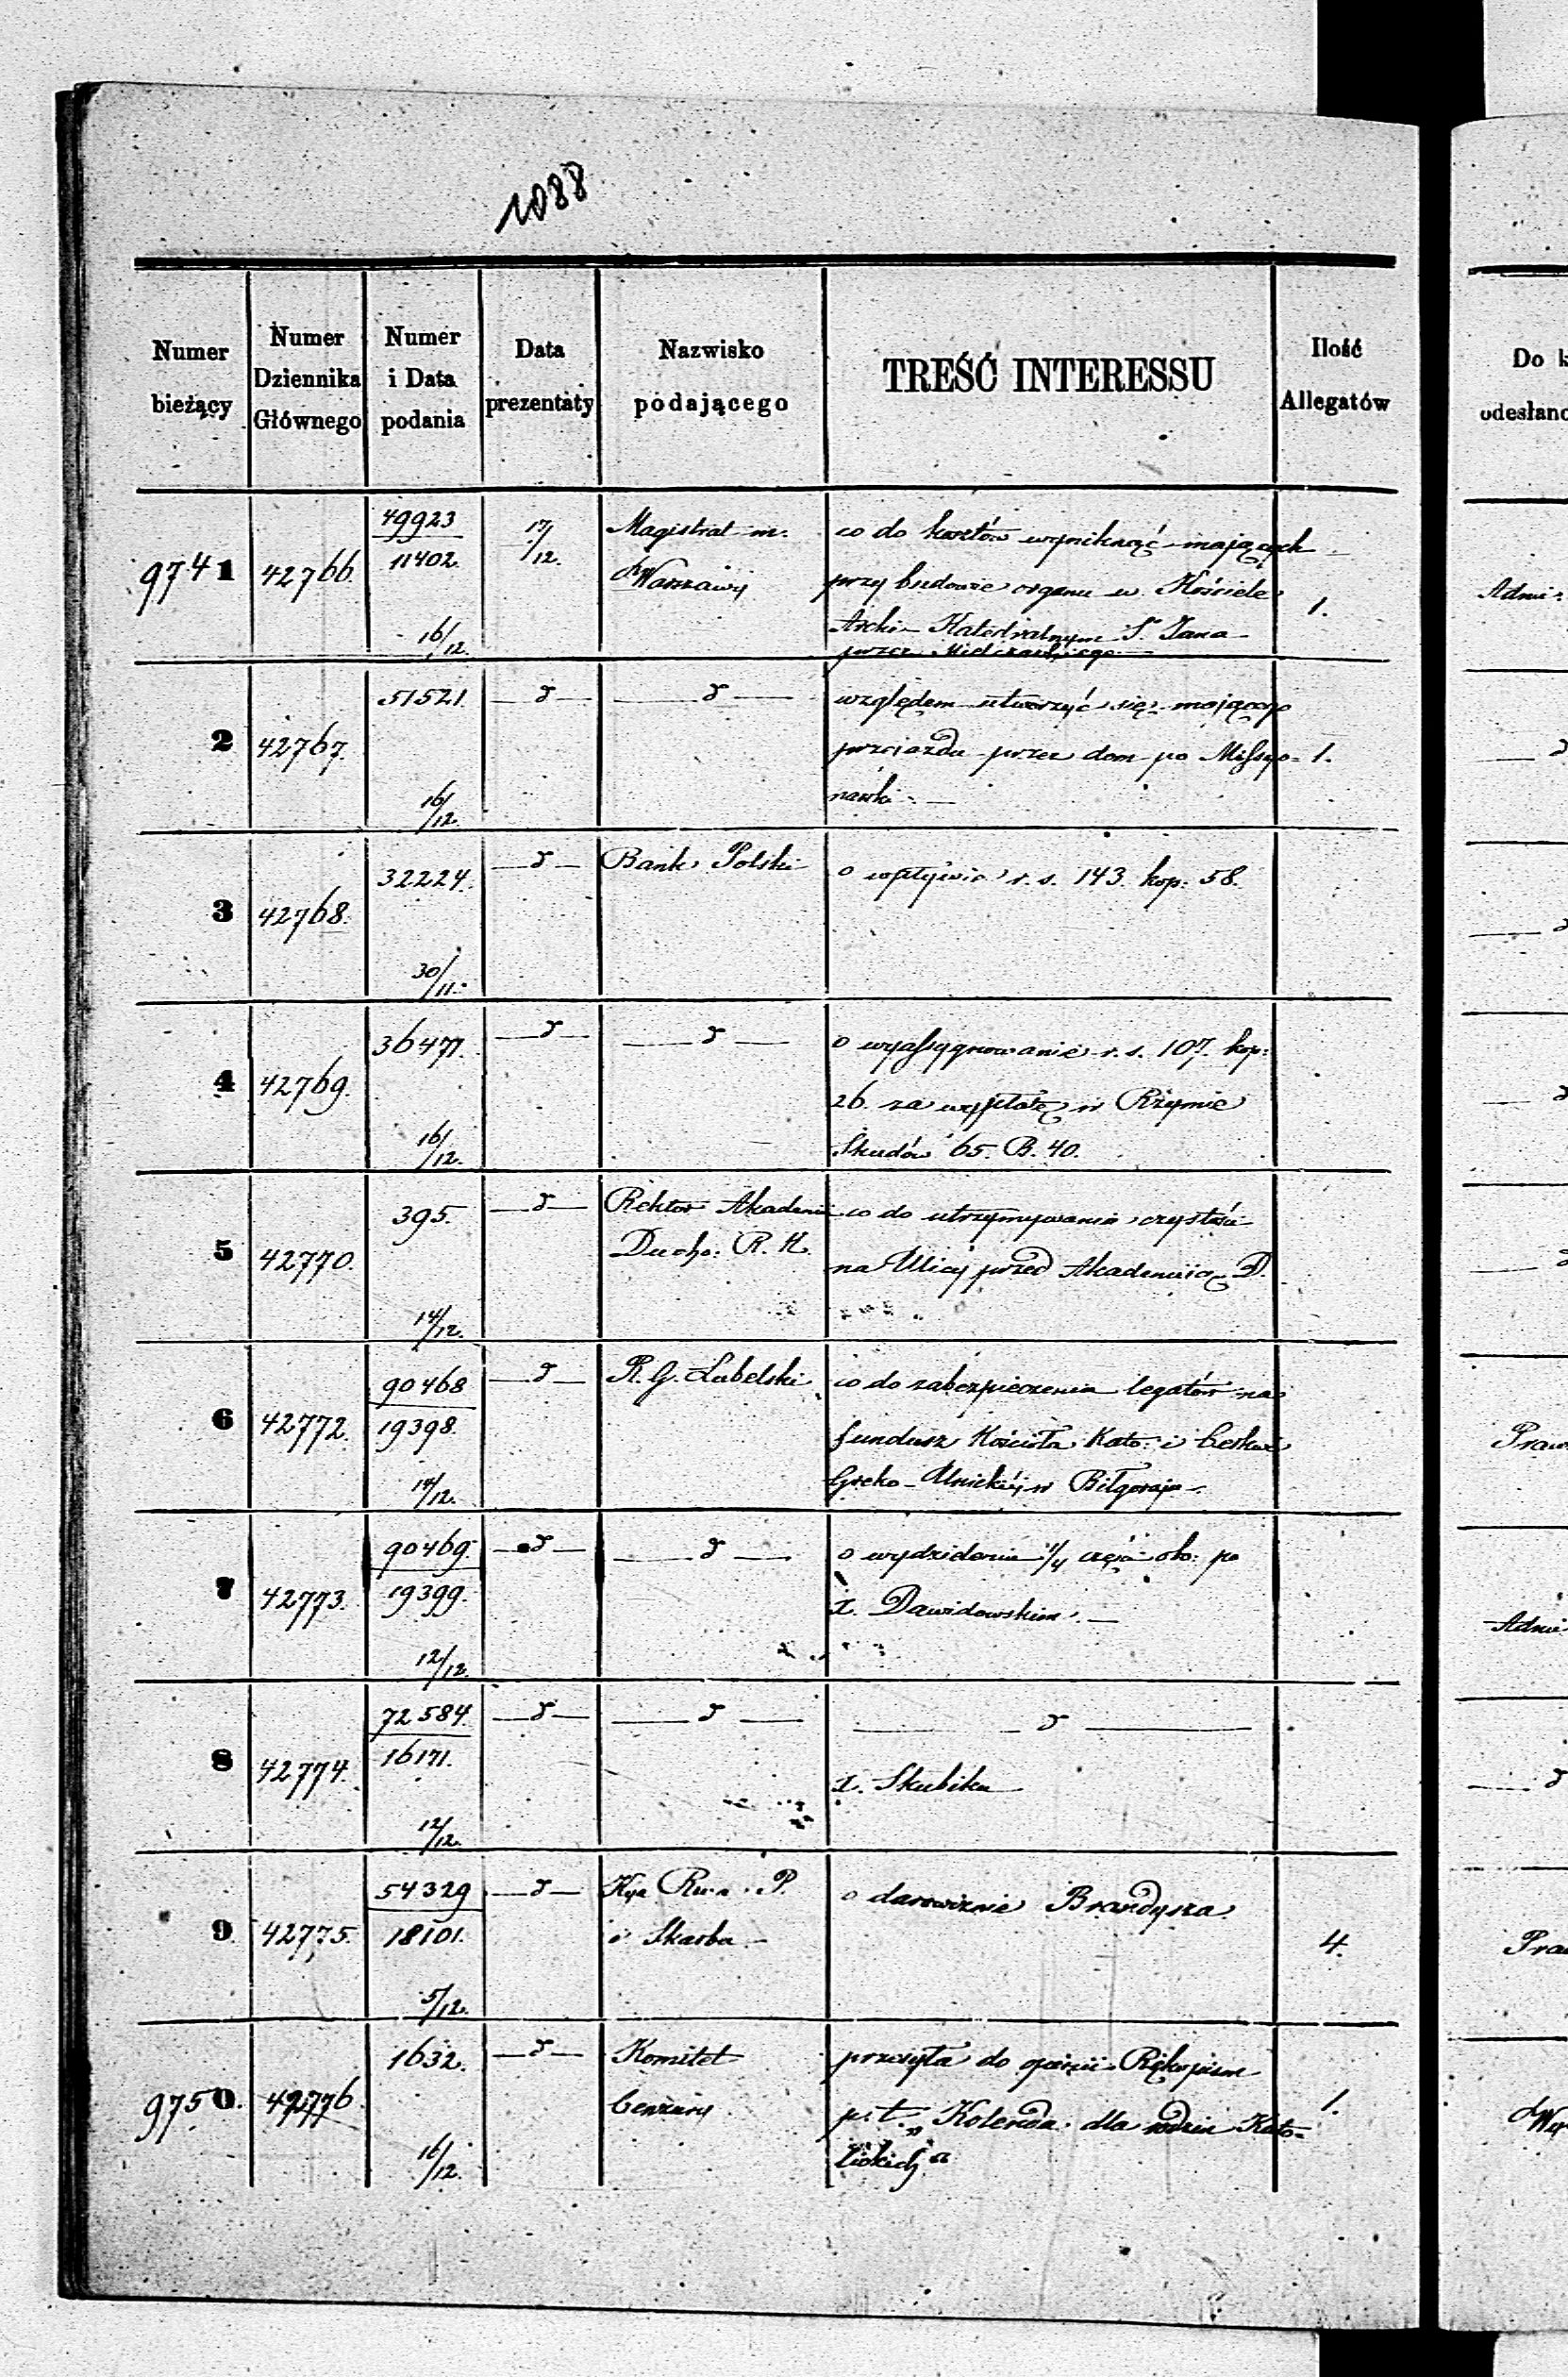 1088
Numer bieżący | Numer Dziennika Głównego | Numer i Data podania | Data prezentaty | Nazwisko podającego | TREŚĆ INTERESSU | Ilość Allegatów | Do k
odesłano
9741 | 42766. | 49923 / 11402. 16/12. | 17/12. | Magistrat m. Warszawy | co do kosztów wyniknąć mających
przy budowie organu w Kościele | 1. | Admi:
Archi-Katedralnym S. Jana
przez Mielczarskiego
2 | 42767. | 51521. 16/12. | d | d | względem utworzyć się mającego
przejazdu przez dom po Missyo- | 1. | d
narski.
3 | 42768. | 32224. 30/11. | d | Bank Polski | o wpływie r. s. 143. kop: 58. | d
4 | 42769. | 36477. 16/12. | d | d | o wyassygnowanie r. s. 107. kop:
26. za wypłatę w Rzymie | d
Skudów 65. B. 40.
5 | 42770. | 395. 14/12. | d | Rektor Akademii Ducho: R. K. | co do utrzymywania czystości
na Ulicy przed Akademiią D. | d
6 | 42772. | 90468 / 19398. 14/12. | d | R. G. Lubelski | co do zabezpieczenia legatów na
fundusz Kościoła Kato: i Cerkwi | Praw
Greko-Unickiéj w Biłgoraju.
7 | 42773. | 90469. / 19399. 12/12. | d | d | o wydzielenie 1/4 części po
X. Dawidowskim. | Admi
8 | 42774. | 72584. / 16171. 12/12. | d | d | d
X. Skubiku | d
9 | 42775. | 54329 / 18101. 5/12. | d | Kya Rwa P. i Skarbu | o darowiznie Brandysza. | 4. | Pra
9750. | 42776. | 1632. 16/12. | d | Komitet Cenzury | przesyła do opinii Rękopism
p. t. „Kolenda dla rodzin Kato- | 1. | Wy
lickich"